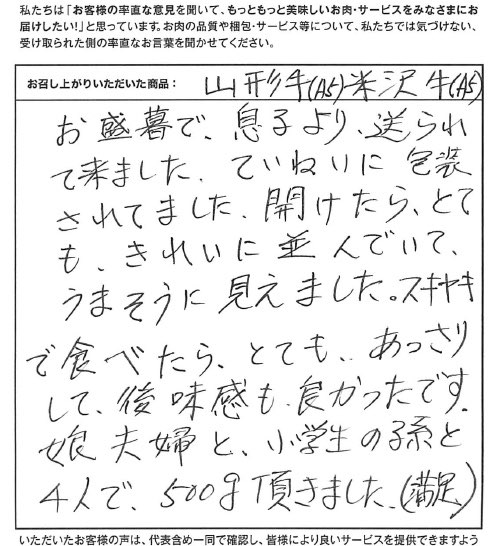 私たちは「お客様の率直な意見を聞いて、もっともっと美味しいお肉・サービスをみなさまにお
届けしたい!」と思っています。お肉の品質や梱包・サービス等について、私たちでは気づけない、
受け取られた側の率直なお言葉を聞かせてください。
お召し上がりいただいた商品: 山形牛(A5)米沢牛(A5)
お盛暮で、息子より、送られ
て来ました。ていねいに包装
されてました。開けたら、とて
も、きれいに並んでいて、
うまそうに見えました。スキヤキ
で食べたら、とても、あっさり
して、後味感も良かったです。
娘夫婦と、小学生の孫と
4人で、500g頂きました。(満足)
いただいたお客様の声は、代表含め一同で確認し、皆様により良いサービスを提供できますよう